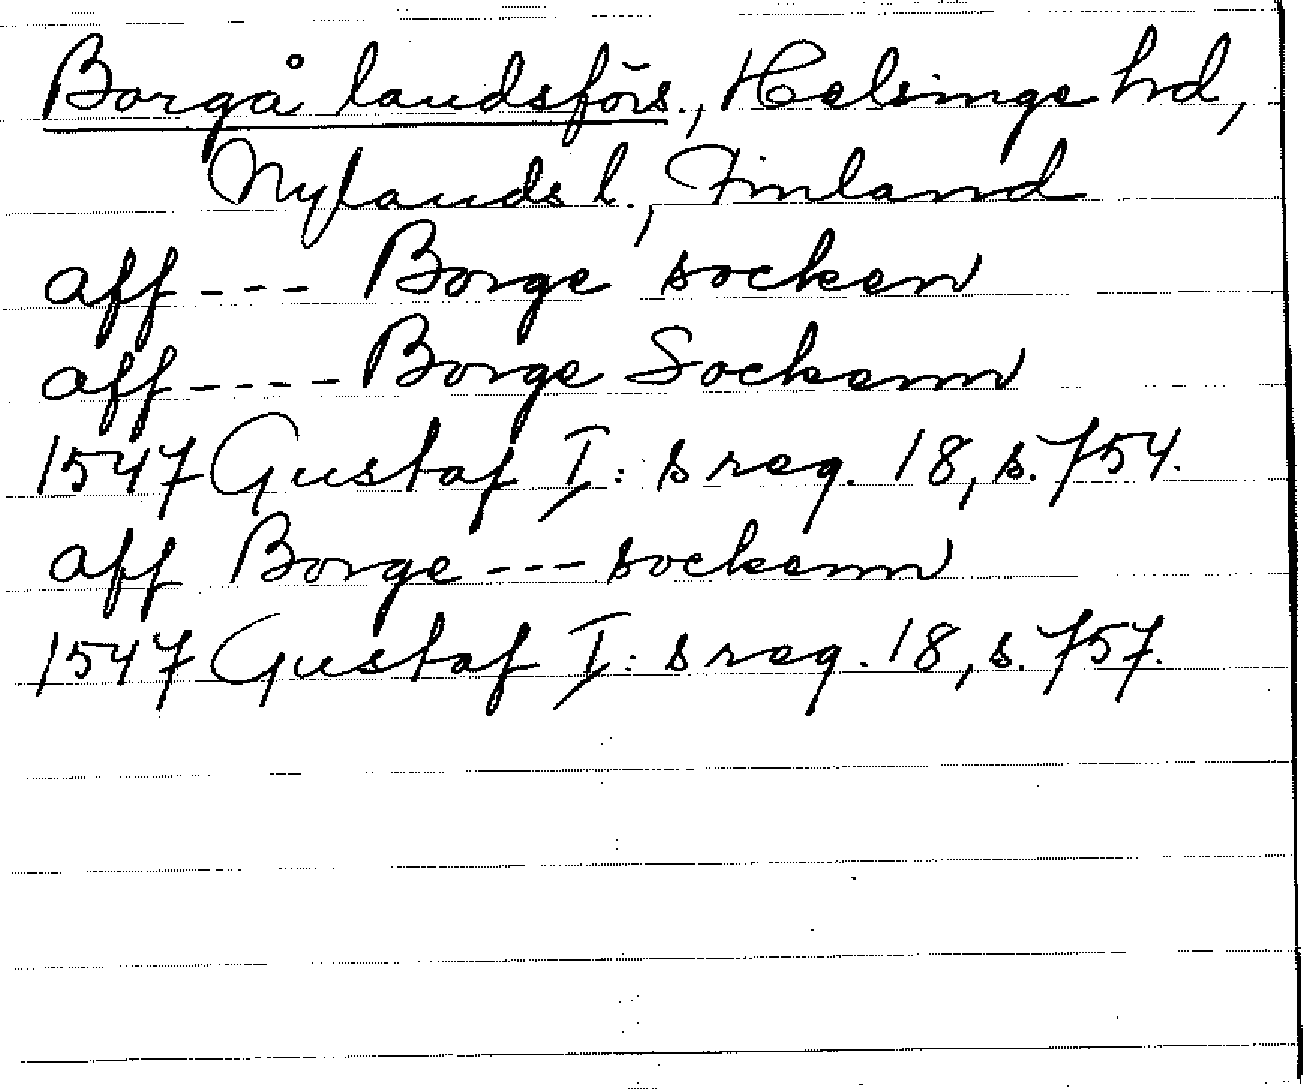 Borgå landsförs., Helsinge hd,
Nylands l., Finland
aff --- Borge socken
aff ---- Borge Sockenn
1547 Gustaf I:s reg. 18, s. 754.
aff Borge --- sockenn
1547 Gustaf I:s reg. 18, s. 757.